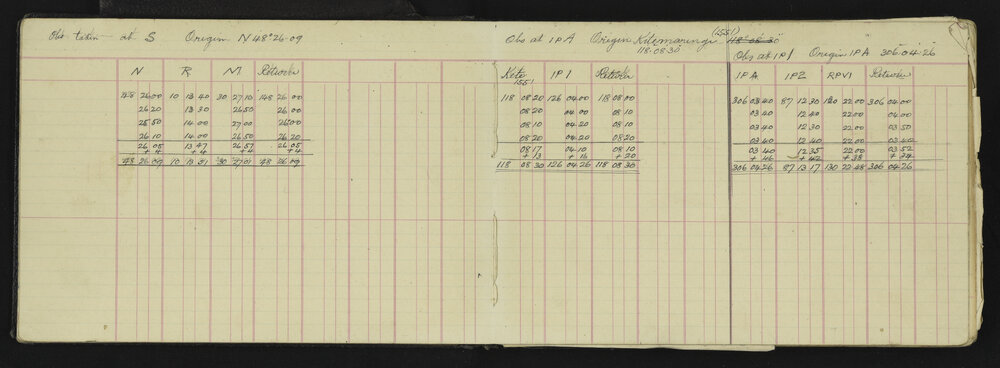 Obs taken at S Origin N 48° 26 - 09
N R M Retwoke
148 26 00 10 13 40 30 27 10 148 26 00
26 20 13 30 26 50 26 00
25 50 14 00 27 00 26 00
26 10 14 00 26 50 26 20
26 05 13 47 26 57 26 05
+ 4 + 4 + 4 + 4
148 26 09 10 13 51 30 27 01 148 26 09
Obs at 1PA Origin Kitemaringi (1551) 118° 08 30
118 - 08 - 30
Kete 1551 IP 1
118 08 20 126 04 00 118 08 00
08 20 04 00 08 10
08 10 04 20 08 10
08 20 04 20 08 20
08 17 04 10 08 10
+ 13 + 16 + 20
118 08 30 126 04 26 118 08 30
Obs at IP 1 Origin IPA 306 - 04 - 26
IPA IP2 RPVI
306 03 40 87 12 30 130 22 00 306 04 00
03 40 12 40 22 00 04 00
03 40 12 30 22 00 03 50
03 40 12 40 22 00 03 40
03 40 12 35 22 00 03 52
+ 46 + 42 + 38 + 34
306 04 26 87 13 17 130 22 48 306 04 26